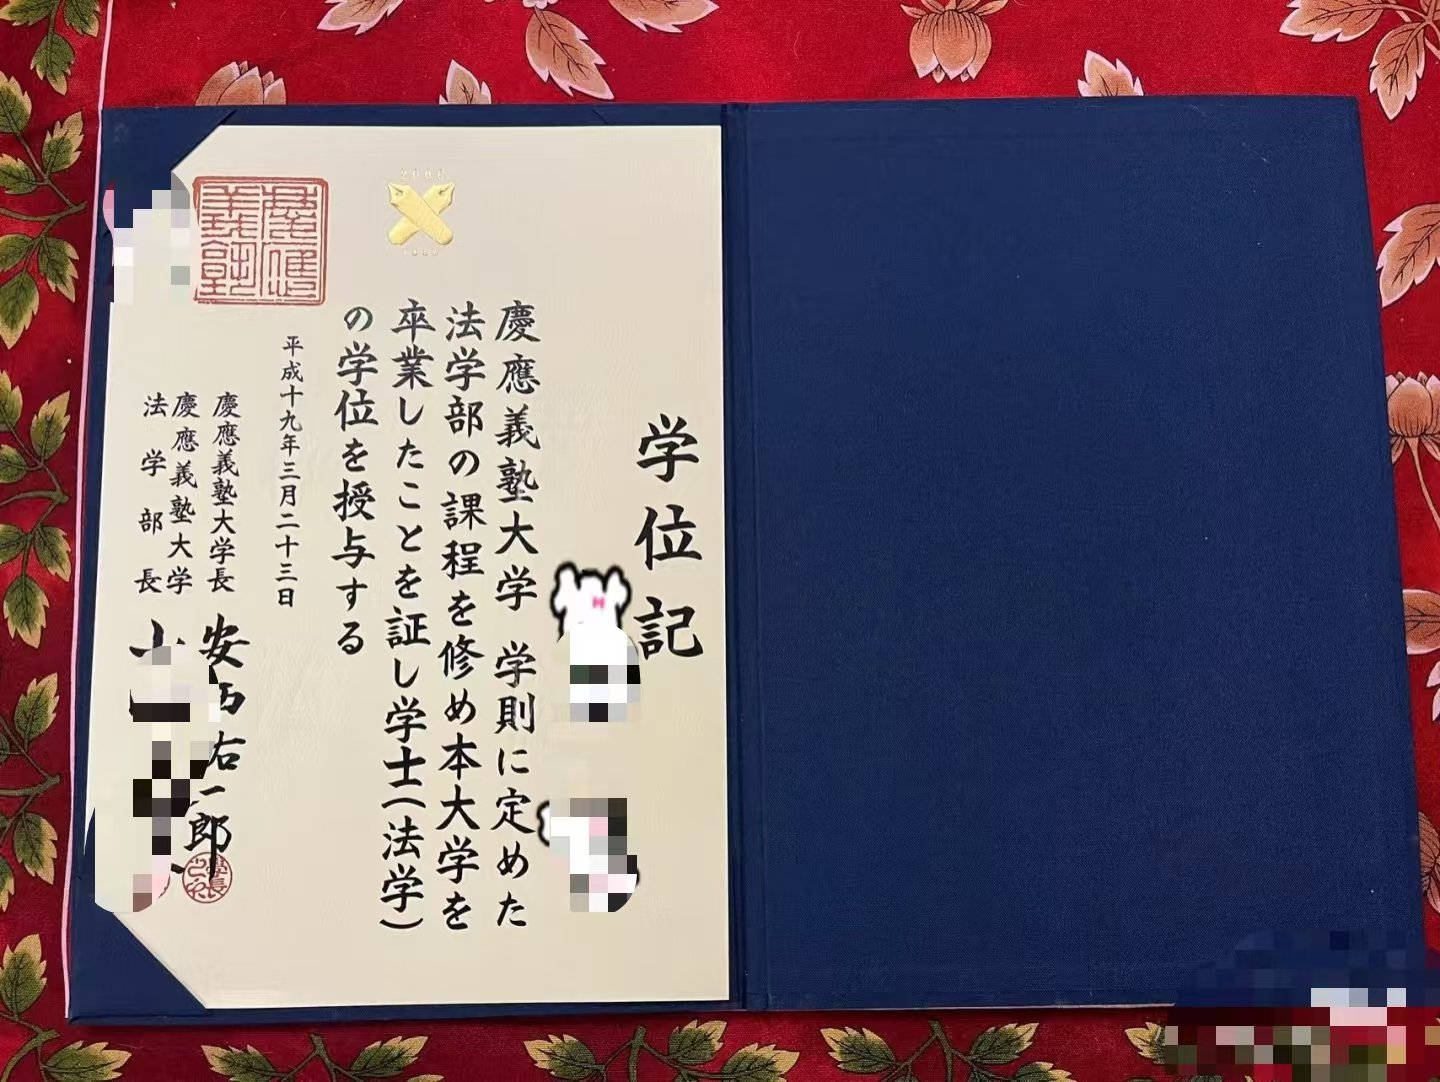 学位記
慶應義塾大学 学則に定めた
法学部の課程を修め本大学を
卒業したことを証し学士(法学)
の学位を授与する
平成十九年三月二十三日
慶應義塾大学長 安西祐一郎
慶應義塾大学
法学部長
慶應義塾
2006